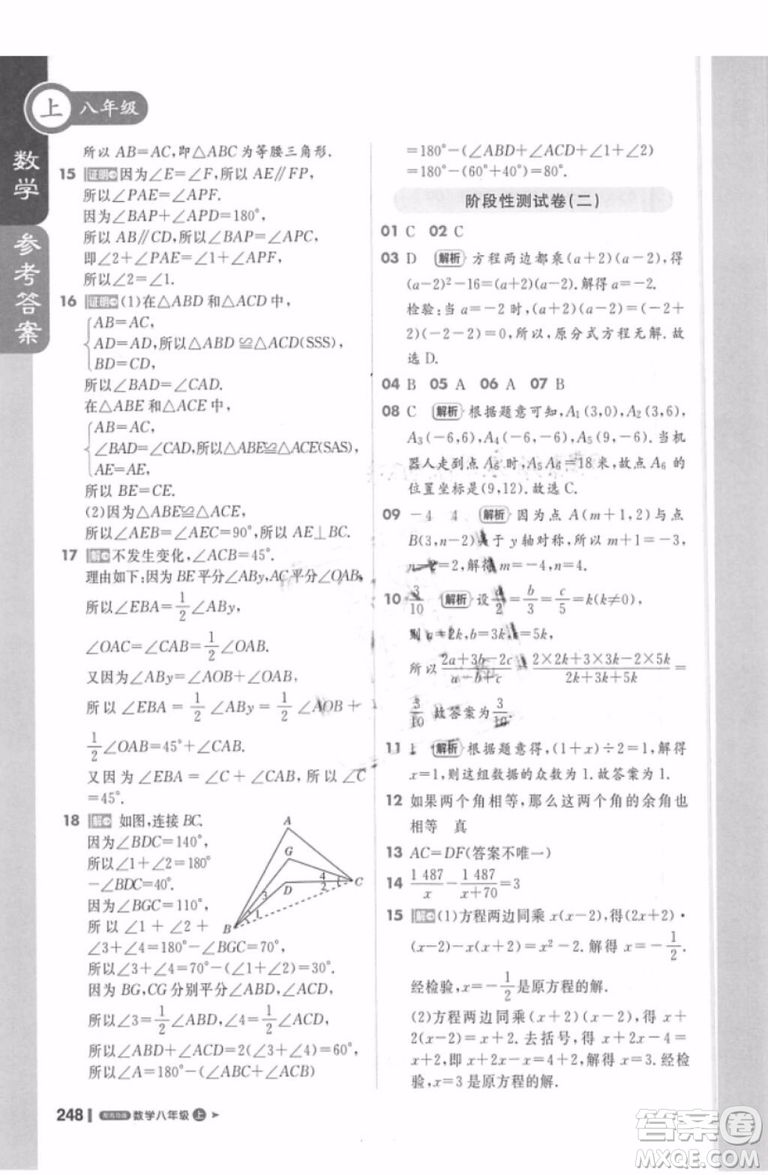 上 八年级
数学
参考答案
所以 AB=AC,即△ABC 为等腰三角形.
15 证明 因为∠E=∠F,所以 AE∥FP,
所以∠PAE=∠APF.
因为∠BAP+∠APD=180°,
所以 AB∥CD,所以∠BAP=∠APC,
即∠2+∠PAE=∠1+∠APF,
所以∠2=∠1.
16 证明 (1)在△ABD 和△ACD 中,
AB=AC,
AD=AD,所以△ABD≌△ACD(SSS),
BD=CD,
所以∠BAD=∠CAD.
在△ABE 和△ACE 中,
AB=AC,
∠BAD=∠CAD,所以△ABE≌△ACE(SAS),
AE=AE,
所以 BE=CE.
(2)因为△ABE≌△ACE,
所以∠AEB=∠AEC=90°,所以 AE⊥BC.
17 解 不发生变化,∠ACB=45°.
理由如下:因为 BE 平分∠ABy,AC 平分∠OAB,
所以∠EBA=1/2∠ABy,
∠OAC=∠CAB=1/2∠OAB.
又因为∠ABy=∠AOB+∠OAB,
所以∠EBA=1/2∠ABy=1/2(∠AOB+∠OAB)=
1/2∠AOB=45°+∠CAB,
又因为∠EBA=∠C+∠CAB,所以∠C=45°.
18 解 如图,连接 BC.
因为∠BDC=140°,
所以∠1+∠2=180°
-∠BDC=40°.
因为∠BGC=110°,
所以∠1+∠2+∠3
+∠4=180°-∠BGC=70°,
所以∠3+∠4=70°-(∠1+∠2)=30°.
因为 BG,CG 分别平分∠ABD,∠ACD,
所以∠3=1/2∠ABD,∠4=1/2∠ACD,
所以∠ABD+∠ACD=2(∠3+∠4)=60°,
所以∠A=180°-(∠ABC+∠ACB)
A
G
D
B
C
1
2
3
4
248 数学八年级 上
=180°-(∠ABD+∠ACD+∠1+∠2)
=180°-(60°+40°)=80°.
阶段性测试卷(二)
01 C 02 C
03 D 解析 方程两边都乘(a+2)(a-2),得
(a-2)²-16=(a+2)(a-2),解得 a=-2.
检验:当 a=-2 时,(a+2)(a-2)=(-2+
2)(-2-2)=0,所以,原分式方程无解.故
选 D.
04 B 05 A 06 A 07 B
08 C 解析 根据题意可知,A₁(3,0),A₂(3,6),
A₃(-6,6),A₄(-6,-6),A₅(9,-6).当机
器人走到点 A₆时,A₅A₆=18 米,故点 A₆ 的
位置坐标是(9,12).故选 C.
09 -4 4 解析 因为点 A(m+1,1)与点
B(3,n-2)关于 y 轴对称,所以 m+1=-3,
n-2=1,解得 m=-4,n=3.
10 3/10 解析 设a/2=b/3=c/5=k(k≠0),
则 a=2k,b=3k,c=5k,
所以 (2a+3b-2c)/(a-b+c)=(2×2k+3×3k-2×5k)/(2k-3k+5k)=
3/10.故答案为3/10.
11 1 解析 根据题意得,(1+x)÷2=1,解得
x=1,则这组数据的众数为 1.
12 如果两个角相等,那么这两个角的余角也
相等 真
13 AC=DF(答案不唯一)
14 1 487/x-1 487/(x+70)=3
15 解 (1)方程两边同乘 x(x-2),得(x+2)·
(x-2)-x(x-2)=x²-2.解得 x=-1/2.
经检验,x=-1/2是原方程的解.
(2)方程两边同乘(x+2)(x-2),得
x(x+2)-(x²-4)=8.去括号,得 x²+
2x-x²+4=8.移项、合并,解得 x=2.经检
答案圈
MXQE.COM